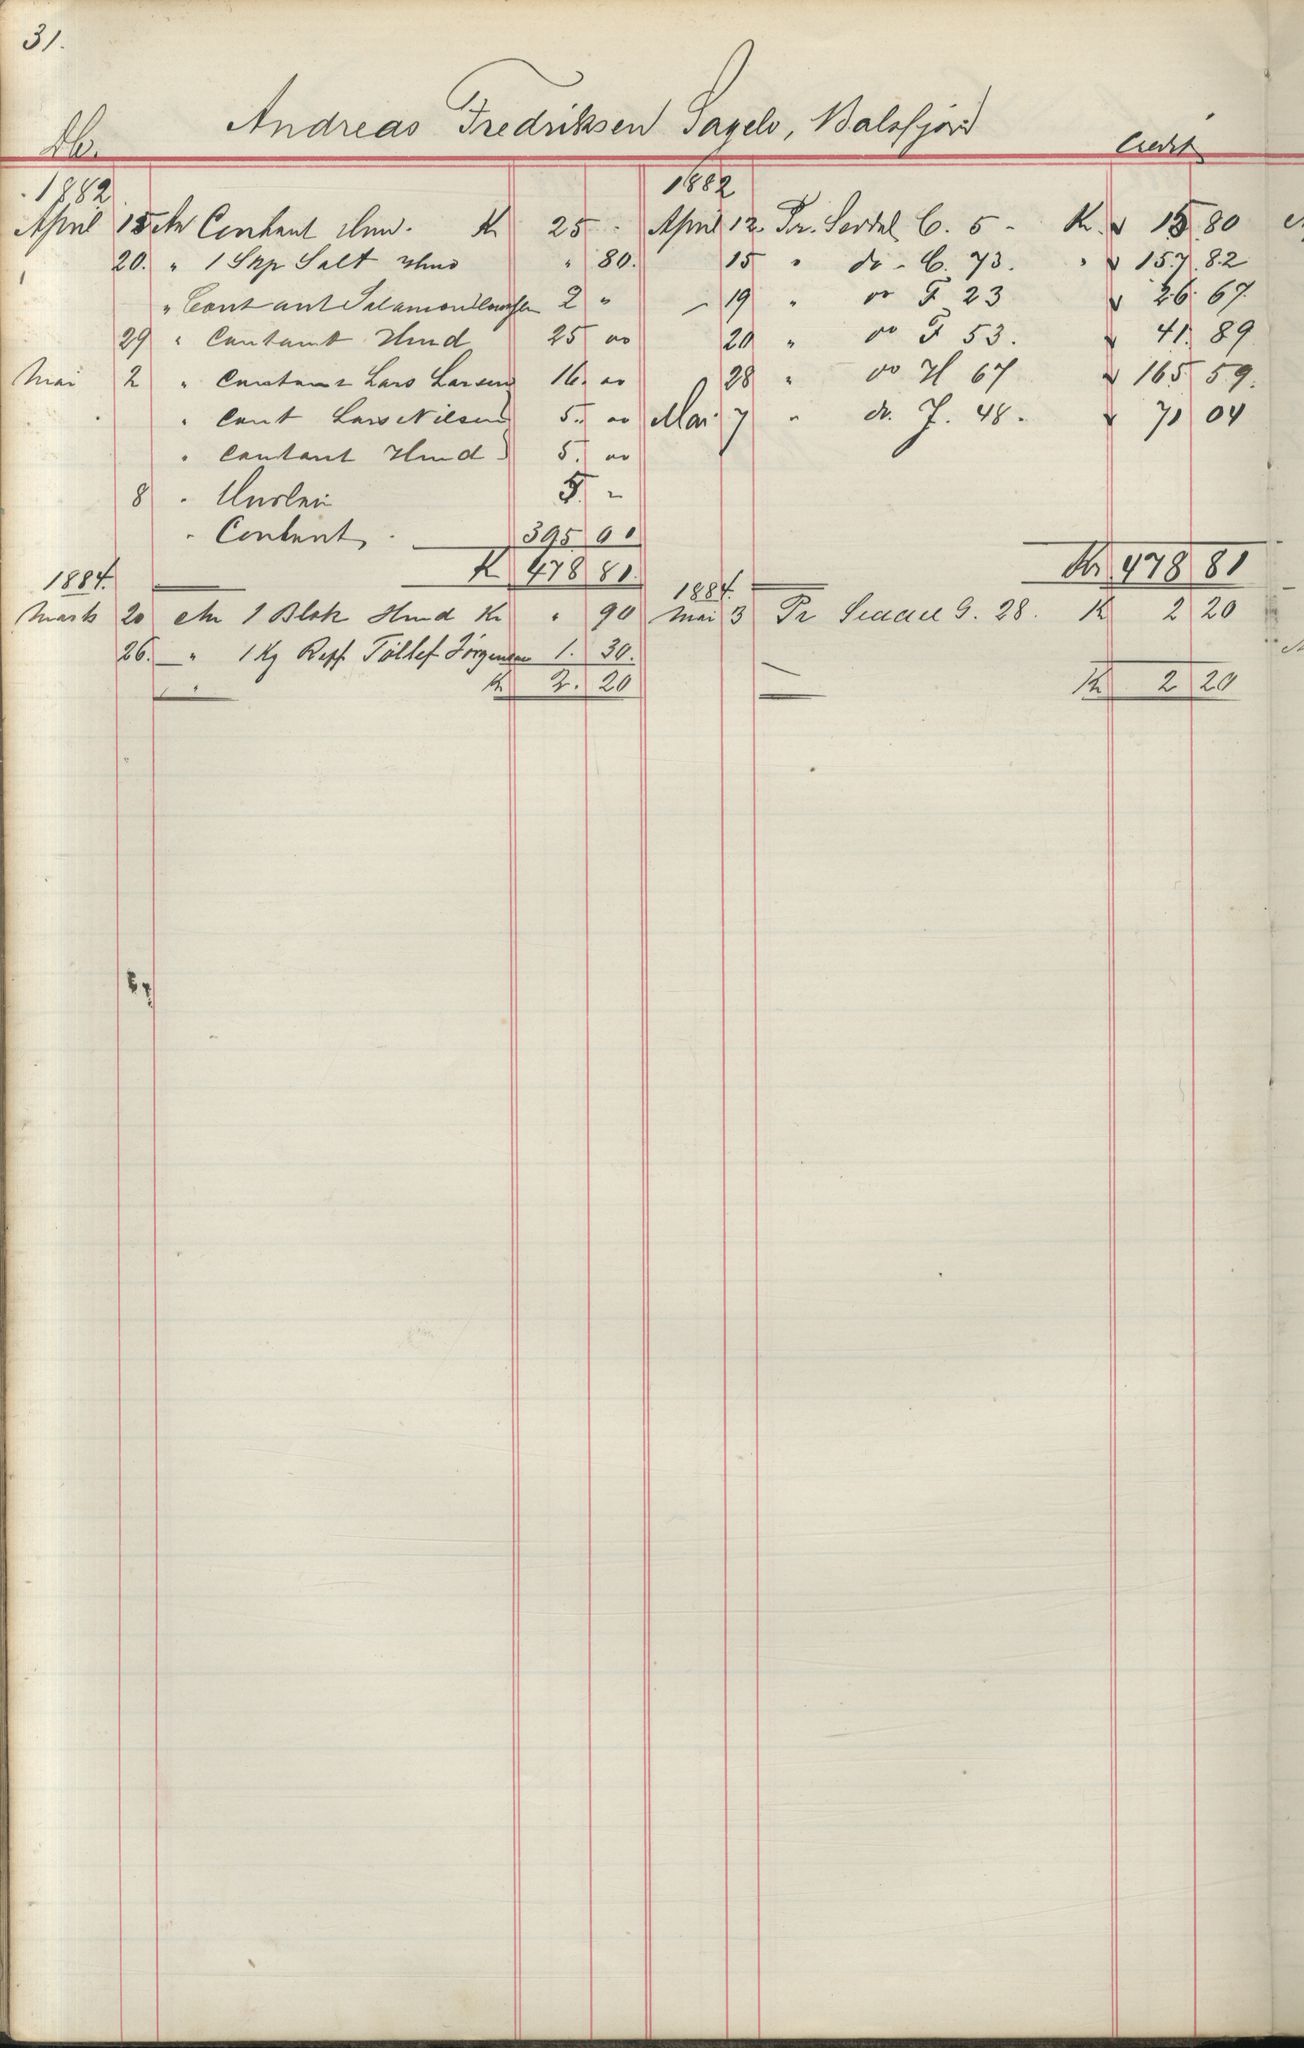 31.
Andreas Fredriksen Sagelv, Balsfjord
Db. Credit
1882
April 15 An Contant Hmd. K 25 "
20. " 1 Skp Salt Hmd " 80.
" Contant Salamon 2 "
29 " Contant Hmd 25 00
Mai 2 " Contant Lars Larsen 16. 00
" Cont Lars Nilsen 5. 00
" Contant Hmd 5. 00
8 " 5 "
" Contant 395 01
K 478 81.
1884.
Marts 20 An 1 Blok Hmd Kr " 90
26. " 1 Kg Rep Tollef Jørgensen 1. 30.
" Kr 2. 20
1882
April 12. Pr. Seddel C. 5 - Kr. 15 80
15 " do - C. 73. " 157. 82
19 " do F 23 26 67
20 " do F 53. 41. 89
28 " do H 67 165 59.
Mai 7 " do. J. 48. 71 04
Kr 478 81
1884.
Mai 3 Pr Seddel G. 28. K 2 20
Kr 2 20